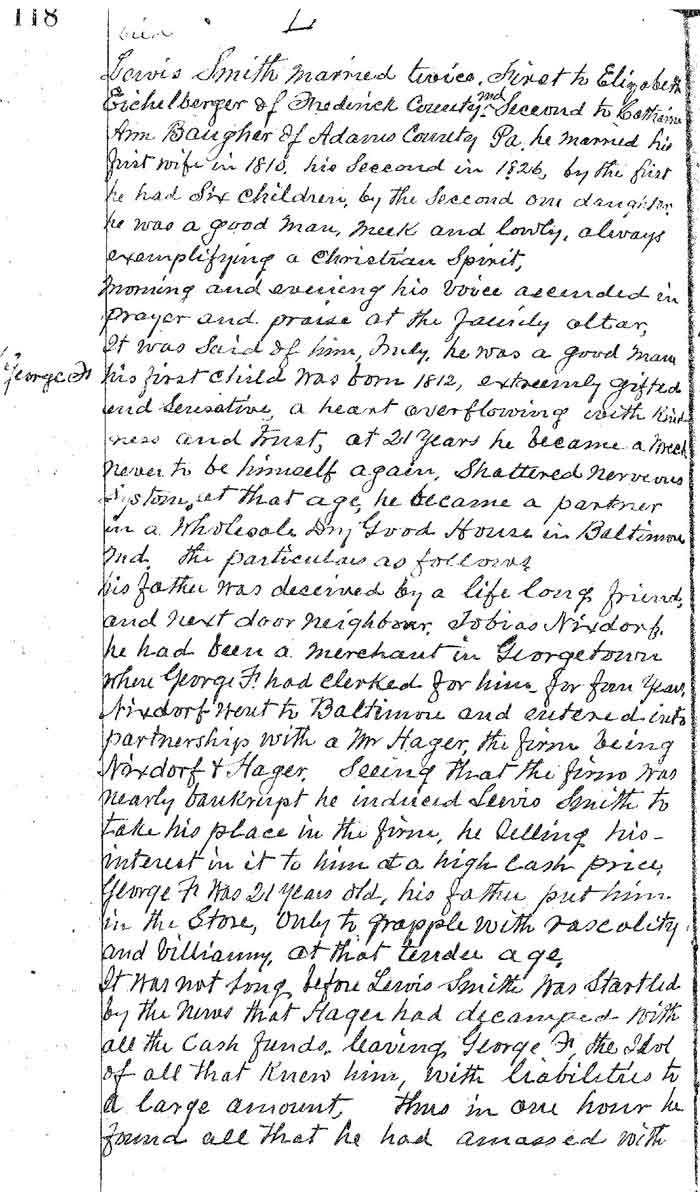 118
L
Lewis Smith married twice. First to Elizabeth
Eichelberger of Frederick County Md. Second to Catharine
Ann Baugher of Adams County Pa. he married his
first wife in 1810. his Second in 1826, by the first
he had Six Children, by the Second one daughter.
he was a good man, Meek and lowly, always
exemplifying a Christian Spirit,
Morning and evening his Voice ascended in
prayer and praise at the family altar,
It was Said of him, Truly, he was a good man
George F.
his first Child was born 1812, extreemly gifted
and Sensative, a heart overflowing with Kind
ness and trust, at 21 Years he became a Wreck
never to be himself again, Shattered Nerveous
System. at that age, he became a partner
in a Wholesale Dry Good House in Baltimore
Md. the particulars as follows
his father was deceived by a life long friend,
and next door neighbour, Tobias Nixdorf.
he had been a merchant in Georgetown
where George F. had Clerked for him for four Years,
Nixdorf Went to Baltimore and entered into
partnership with a Mr Hager, the firm being
Nixdorf & Hager. Seeing that the firm was
nearly bankrupt he induced Lewis Smith to
take his place in the firm, he Selling his
interest in it to him at a high Cash price,
George F. Was 21 Years old, his father put him
in the Store, Only to grapple with rascality
and Villianny, at that tender age,
It was not long before Lewis Smith Was Startled
by the News that Hager had decamped with
all the Cash funds, leaving George F. the Idol
of all that Knew him, with liabilities to
a large amount, thus in one hour he
found all that he had amassed with